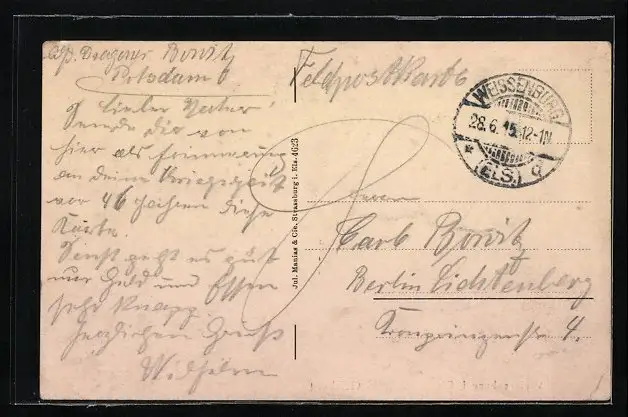 Bowitz
Potsdam
Lieber Vater!
Sende Dir von
hier als
an deine
vor 46 Jahren diese
Karte.
Sonst geht es gut
nur Geld und Essen
sehr knapp
Herzlichen Gruß
Wilhelm
Jul. Manias & Cie, Strassburg i. Els. 4623
Feldpostkarte
WEISSENBURG
28.6.15.12-1N
* (ELS.) a
Herrn
Carl Bowitz
Berlin Lichtenberg
Kronprinzenstr 4.